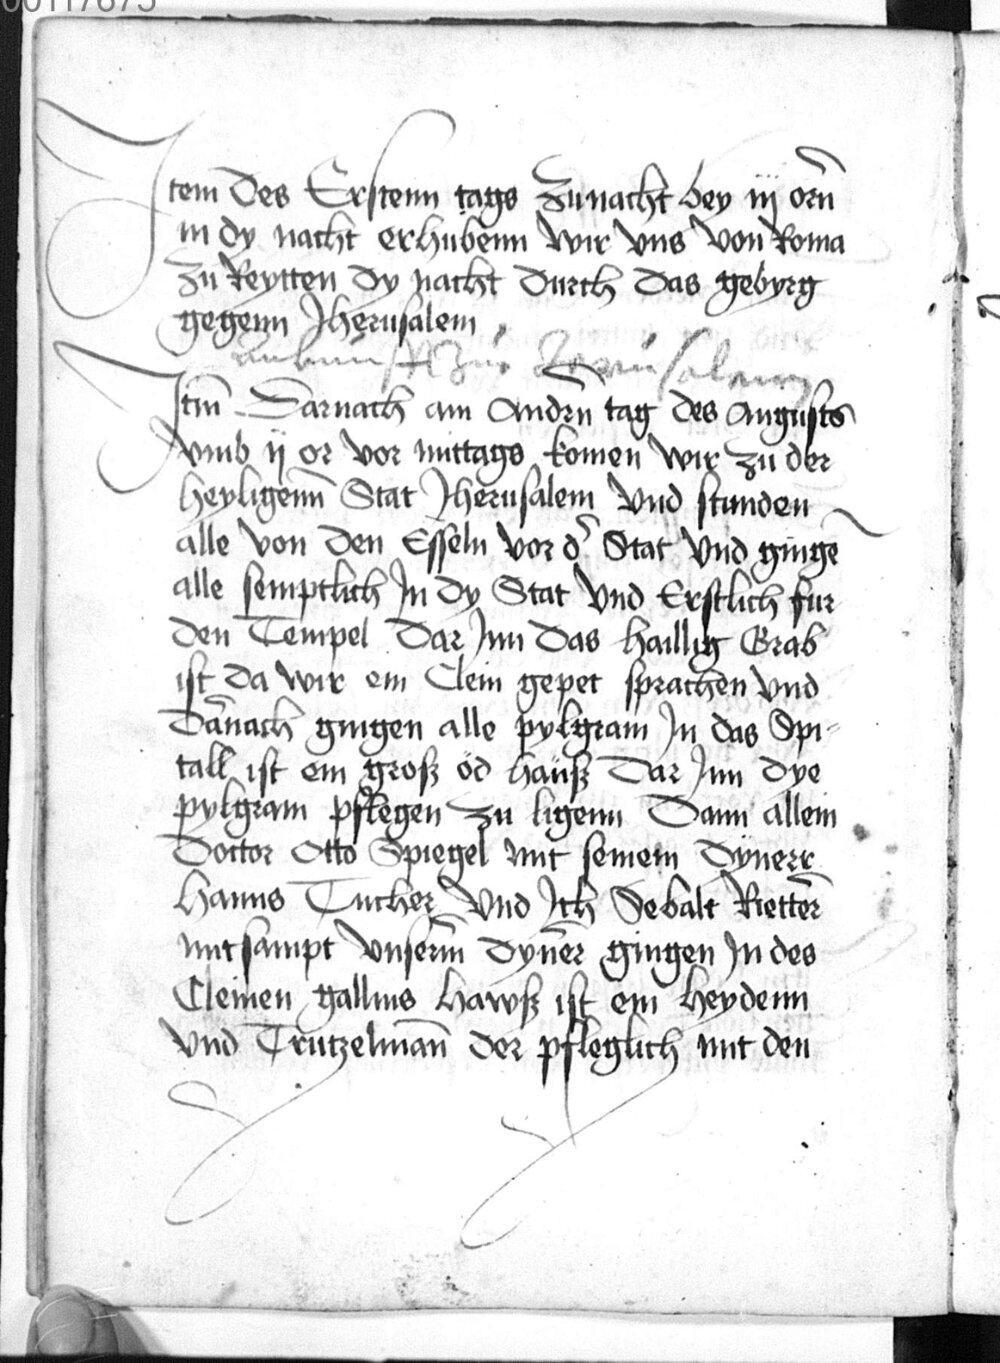 00117675
Jtem Des Erstenn tags zu nacht bey iij orn̄
in dy nacht erhubenn wir vns von Roma
zu Reytten dy nacht durch das gebyrg
gegenn Jherusalem
ankunfft zu Jerusalem
Jtm̄ Darnach am andrn̄ tag des Augusts
vmb ij or vor mittags komen wir zu der
heyligenn̄ Stat Jherusalem vnd stunden
alle von den Esseln vor d̓ Stat vnd ginge̅
alle semptlich Jn dy Stat vnd Erstlich fur
den Tempel dar Jnn das haillig Grab
ist da wir ein Clein gepet sprachen vnd
Da̅nach gingen alle pylgram Jn das Spi-
tall ist ein groß öd hauß Dar Jnn dye
pylgram pflegen zu ligenn Dann allein
Doctor Otto Spiegel mit seinem Dyner
Hanns Tucher vnd Jch Sebalt Rietter̄
mit sampt vnserm̄ dyner̄ gingen Jn des
Cleinen gallins Hawß ist ein Heydenn
vnd Trutzelman̄ der pfleglich mit den